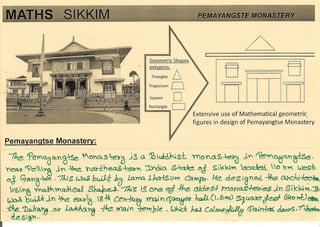 MATHS : SIKKIM
PEMAYANGSTE MONASTERY
Geometric Shapes
polygons.
Triangles
Trapezium
Square
Rectangle
Extensive use of Mathematical geometric
figures in design of Pemayangtse Monastery
Pemayangtse Monastery:
The Pemayangtse Monastery is a Buddhist monastery in Pemayangtse.
near Pelling in the northeastern India State of Sikkim located 110 km west
of Gangtok. This was built by Lama Lhatsum Campo. He designed the
using mathmatical Shapes. This is one of the oldest monasteries in Sikkim. It
was built in the early 18th Century main prayer hall square feet
the Duhang or Lakhang the main temple. which has Colourfully Painted doors.
design.